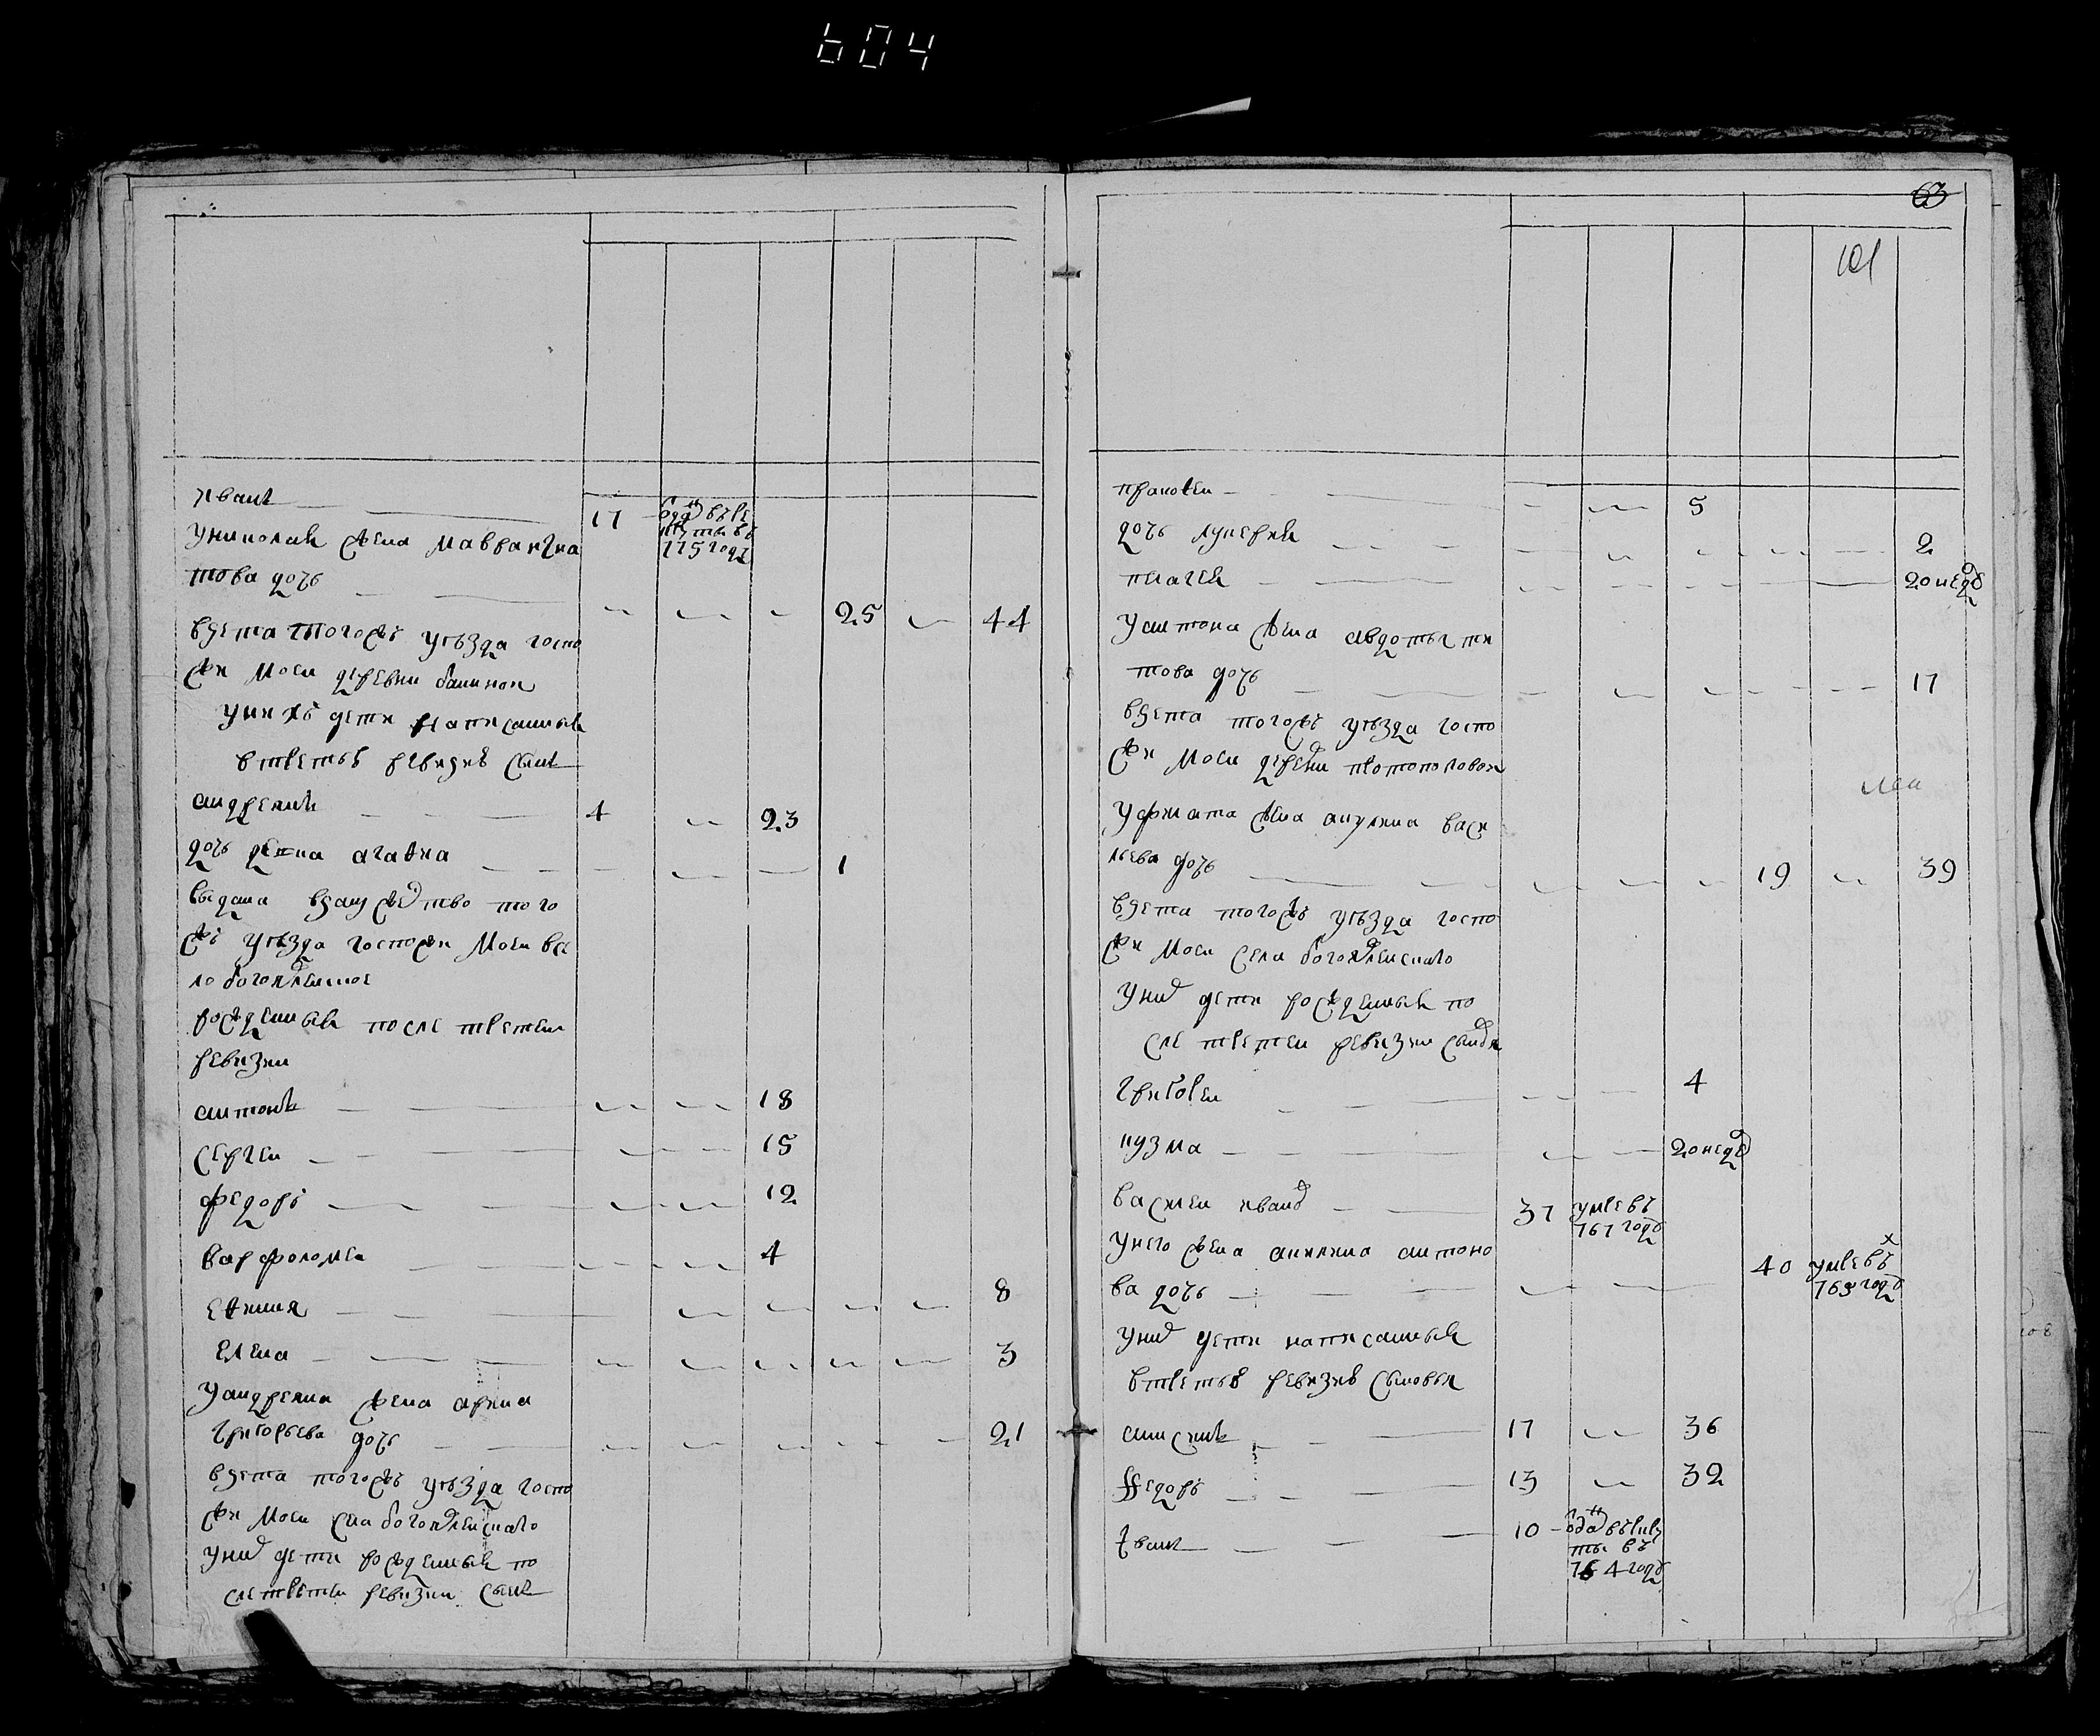 604
иванъ 17 отданъ в рекруты въ 775 году
у николая жена мавра игна
това дочь 25 44
взета тогожъ уезда госпо
жи моеи деревни башнои
у них детѣи написанныя
в третьей ревизиѣ сынъ
андреянъ 4 23
дочь девка агафиа 1
выдана в замужество того
жъ уезда госпожи моеи в се
ло богоявленное
рожденныя после третеи
ревизии
антонъ 18
сергеи 15
федоръ 12
варфоломеи 4
ефимия 8
елена 3
у андреяна жена арина
григорьева дочь 21
взета тогожъ уезда госпо
жи моеи села богоявленскаго
у них дети рожденныя по
сле третеи ревизии сынъ
63
101
пракофеи 5
дочь лукерия 2
пелагея 20 недель
у антона жена авдотья ти
това дочь 17
взета тогожъ уезда госпо
жи моеи деревни протопоповои
у филата жена акулина васи
льева дочь 19 39
взета тогожъ уезда госпо
жи моеи села богоявленскаго
у них дети рожденныя по
сле третеи ревизии сыновя
григореи 4
кузма 20 недель
василеи иванов 37 умре въ 767 году
у него жена акилина антоно
ва дочь 40 умре въ 763 году
у них дети написанныя
в третьей ревизиѣ сыновья
анисимъ 17 36
федоръ 13 32
иванъ 10 отданъ в рекруты въ 764 году